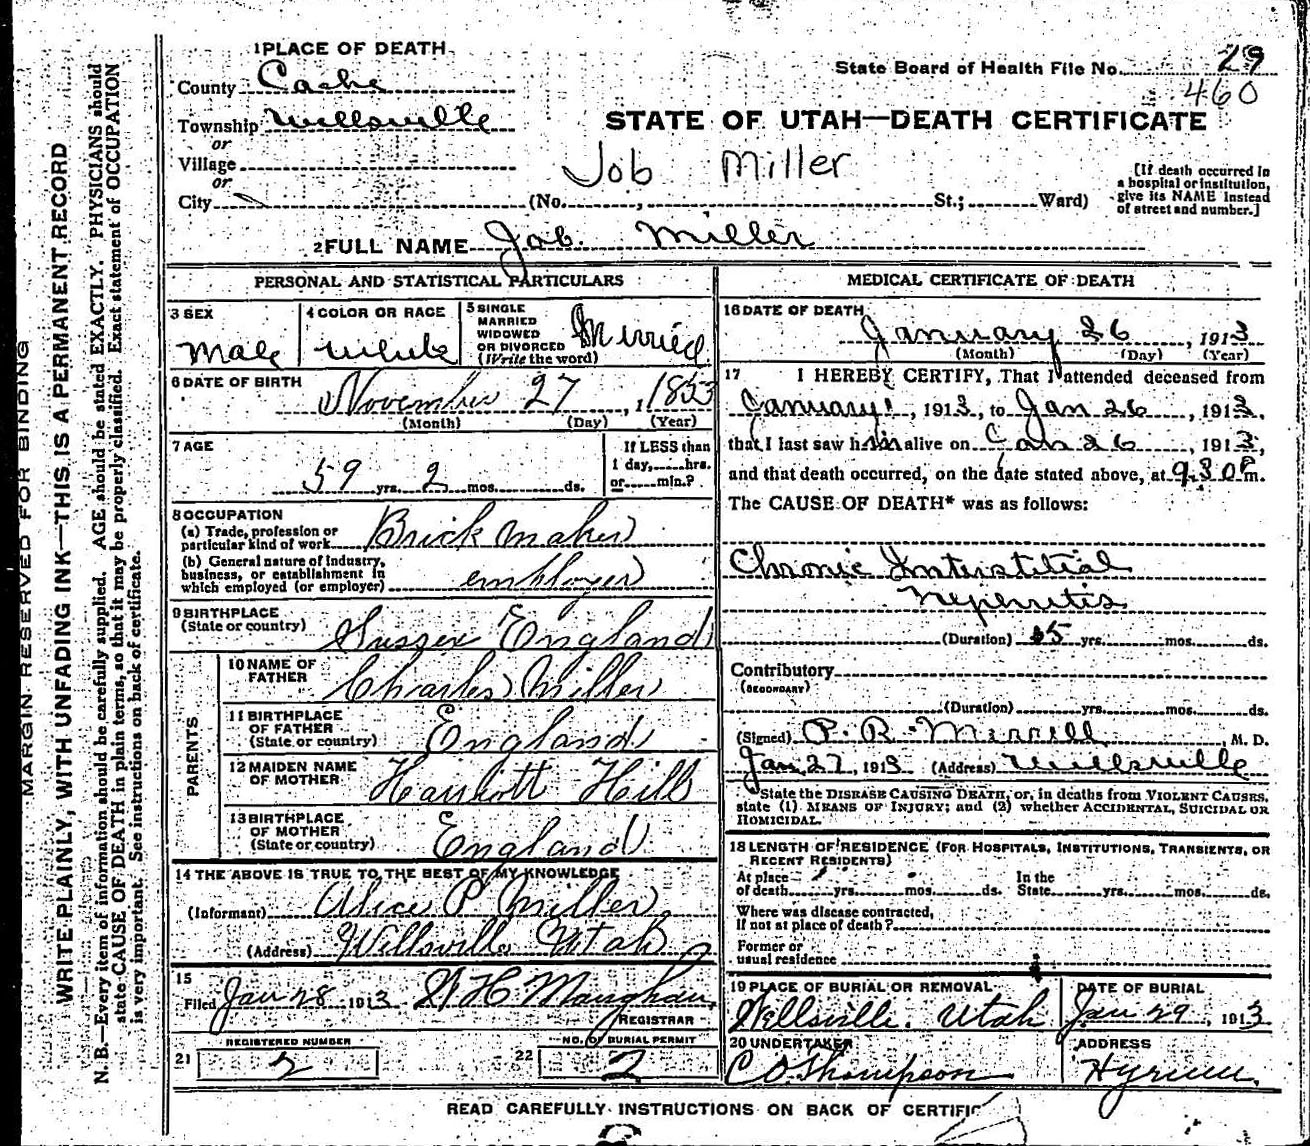 MARGIN RESERVED FOR BINDING
WRITE PLAINLY, WITH UNFADING INK—THIS IS A PERMANENT RECORD
N. B.—Every item of information should be carefully supplied. AGE should be stated EXACTLY. PHYSICIANS should
state CAUSE OF DEATH in plain terms, so that it may be properly classified. Exact statement of OCCUPATION
is very important. See instructions on back of certificate.
1 PLACE OF DEATH
County Cache
Township Wellsville
or
Village
or
City
(No. , St.; Ward)
State Board of Health File No. 29
460
STATE OF UTAH—DEATH CERTIFICATE
Job Miller
[If death occurred in
a hospital or institution,
give its NAME instead
of street and number.]
2 FULL NAME Job. Miller
PERSONAL AND STATISTICAL PARTICULARS
3 SEX
Male
4 COLOR OR RACE
White
5 SINGLE
MARRIED
WIDOWED
OR DIVORCED
(Write the word)
Married
6 DATE OF BIRTH
November 27, 1 1853
(Month) (Day) (Year)
7 AGE
59 yrs. 2 mos. ds.
If LESS than
1 day, hrs.
or min.?
8 OCCUPATION
(a) Trade, profession or
particular kind of work Brick maker
(b) General nature of industry,
business, or establishment in
which employed (or employer) employer
9 BIRTHPLACE
(State or country) Sussex England
PARENTS
10 NAME OF
FATHER Charles Miller
11 BIRTHPLACE
OF FATHER
(State or country) England
12 MAIDEN NAME
OF MOTHER Harriott Hills
13 BIRTHPLACE
OF MOTHER
(State or country) England
14 THE ABOVE IS TRUE TO THE BEST OF MY KNOWLEDGE
(Informant) Alice P Miller
(Address) Wellsville Utah
15
Filed Jan 28 1913 W H Maughan
REGISTRAR
21 REGISTERED NUMBER
2
22 NO. OF BURIAL PERMIT
2
MEDICAL CERTIFICATE OF DEATH
16 DATE OF DEATH
January 26, 1913
(Month) (Day) (Year)
17 I HEREBY CERTIFY, That I attended deceased from
January 1, 1913, to Jan 26, 1913,
that I last saw him alive on Jan 26, 1913,
and that death occurred, on the date stated above, at 9.30 P m.
The CAUSE OF DEATH* was as follows:
Chronic Interstitial
Nephritis
(Duration) yrs. mos. ds.
Contributory
(SECONDARY)
(Duration) yrs. mos. ds.
(Signed) P. R. Merrell, M. D.
Jan 27, 1913 (Address) Wellsville
*State the DISEASE CAUSING DEATH, or, in deaths from VIOLENT CAUSES,
state (1) MEANS OF INJURY; and (2) whether ACCIDENTAL, SUICIDAL OR
HOMICIDAL.
18 LENGTH OF RESIDENCE (FOR HOSPITALS, INSTITUTIONS, TRANSIENTS, OR
RECENT RESIDENTS)
At place
of death yrs. mos. ds.
In the
State yrs. mos. ds.
Where was disease contracted,
If not at place of death?
Former or
usual residence
19 PLACE OF BURIAL OR REMOVAL
Wellsville. Utah
DATE OF BURIAL
Jan 29, 1913
20 UNDERTAKER
C O Thompson
ADDRESS
Hyrum.
READ CAREFULLY INSTRUCTIONS ON BACK OF CERTIFIC